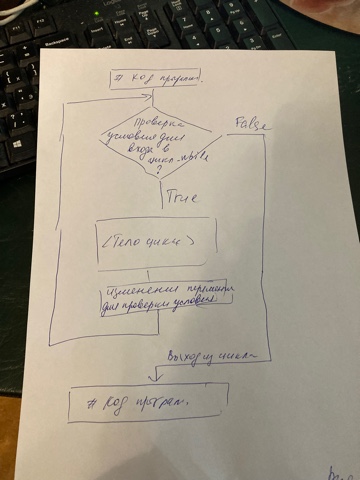 # Код програм.
Проверка
условия для
входа в
цикл while
?
False
True
<Тело цикла>
изменении
для проверки условия
Выход из цикла
# Код програм.